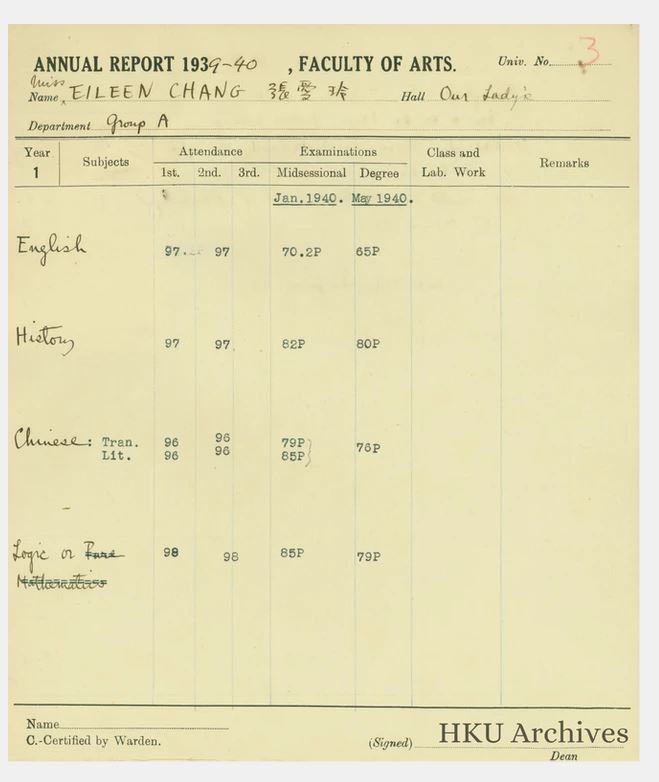 ANNUAL REPORT 1939-40 , FACULTY OF ARTS. Univ. No. 3
Miss
Name EILEEN CHANG 張愛玲 Hall Our Lady's
Department Group A
Year 1 Subjects Attendance Examinations Class and Lab. Work Remarks
1st. 2nd. 3rd. Midsessional Degree
Jan.1940. May 1940.
English 97. 97 70.2P 65P
History 97 97. 82P 80P
Chinese: Tran. 96 96 79P 76P
Lit. 96 96 85P
Logic or Pure 98 98 85P 79P
Mathematics
Name
C.-Certified by Warden. (Signed) HKU Archives
Dean